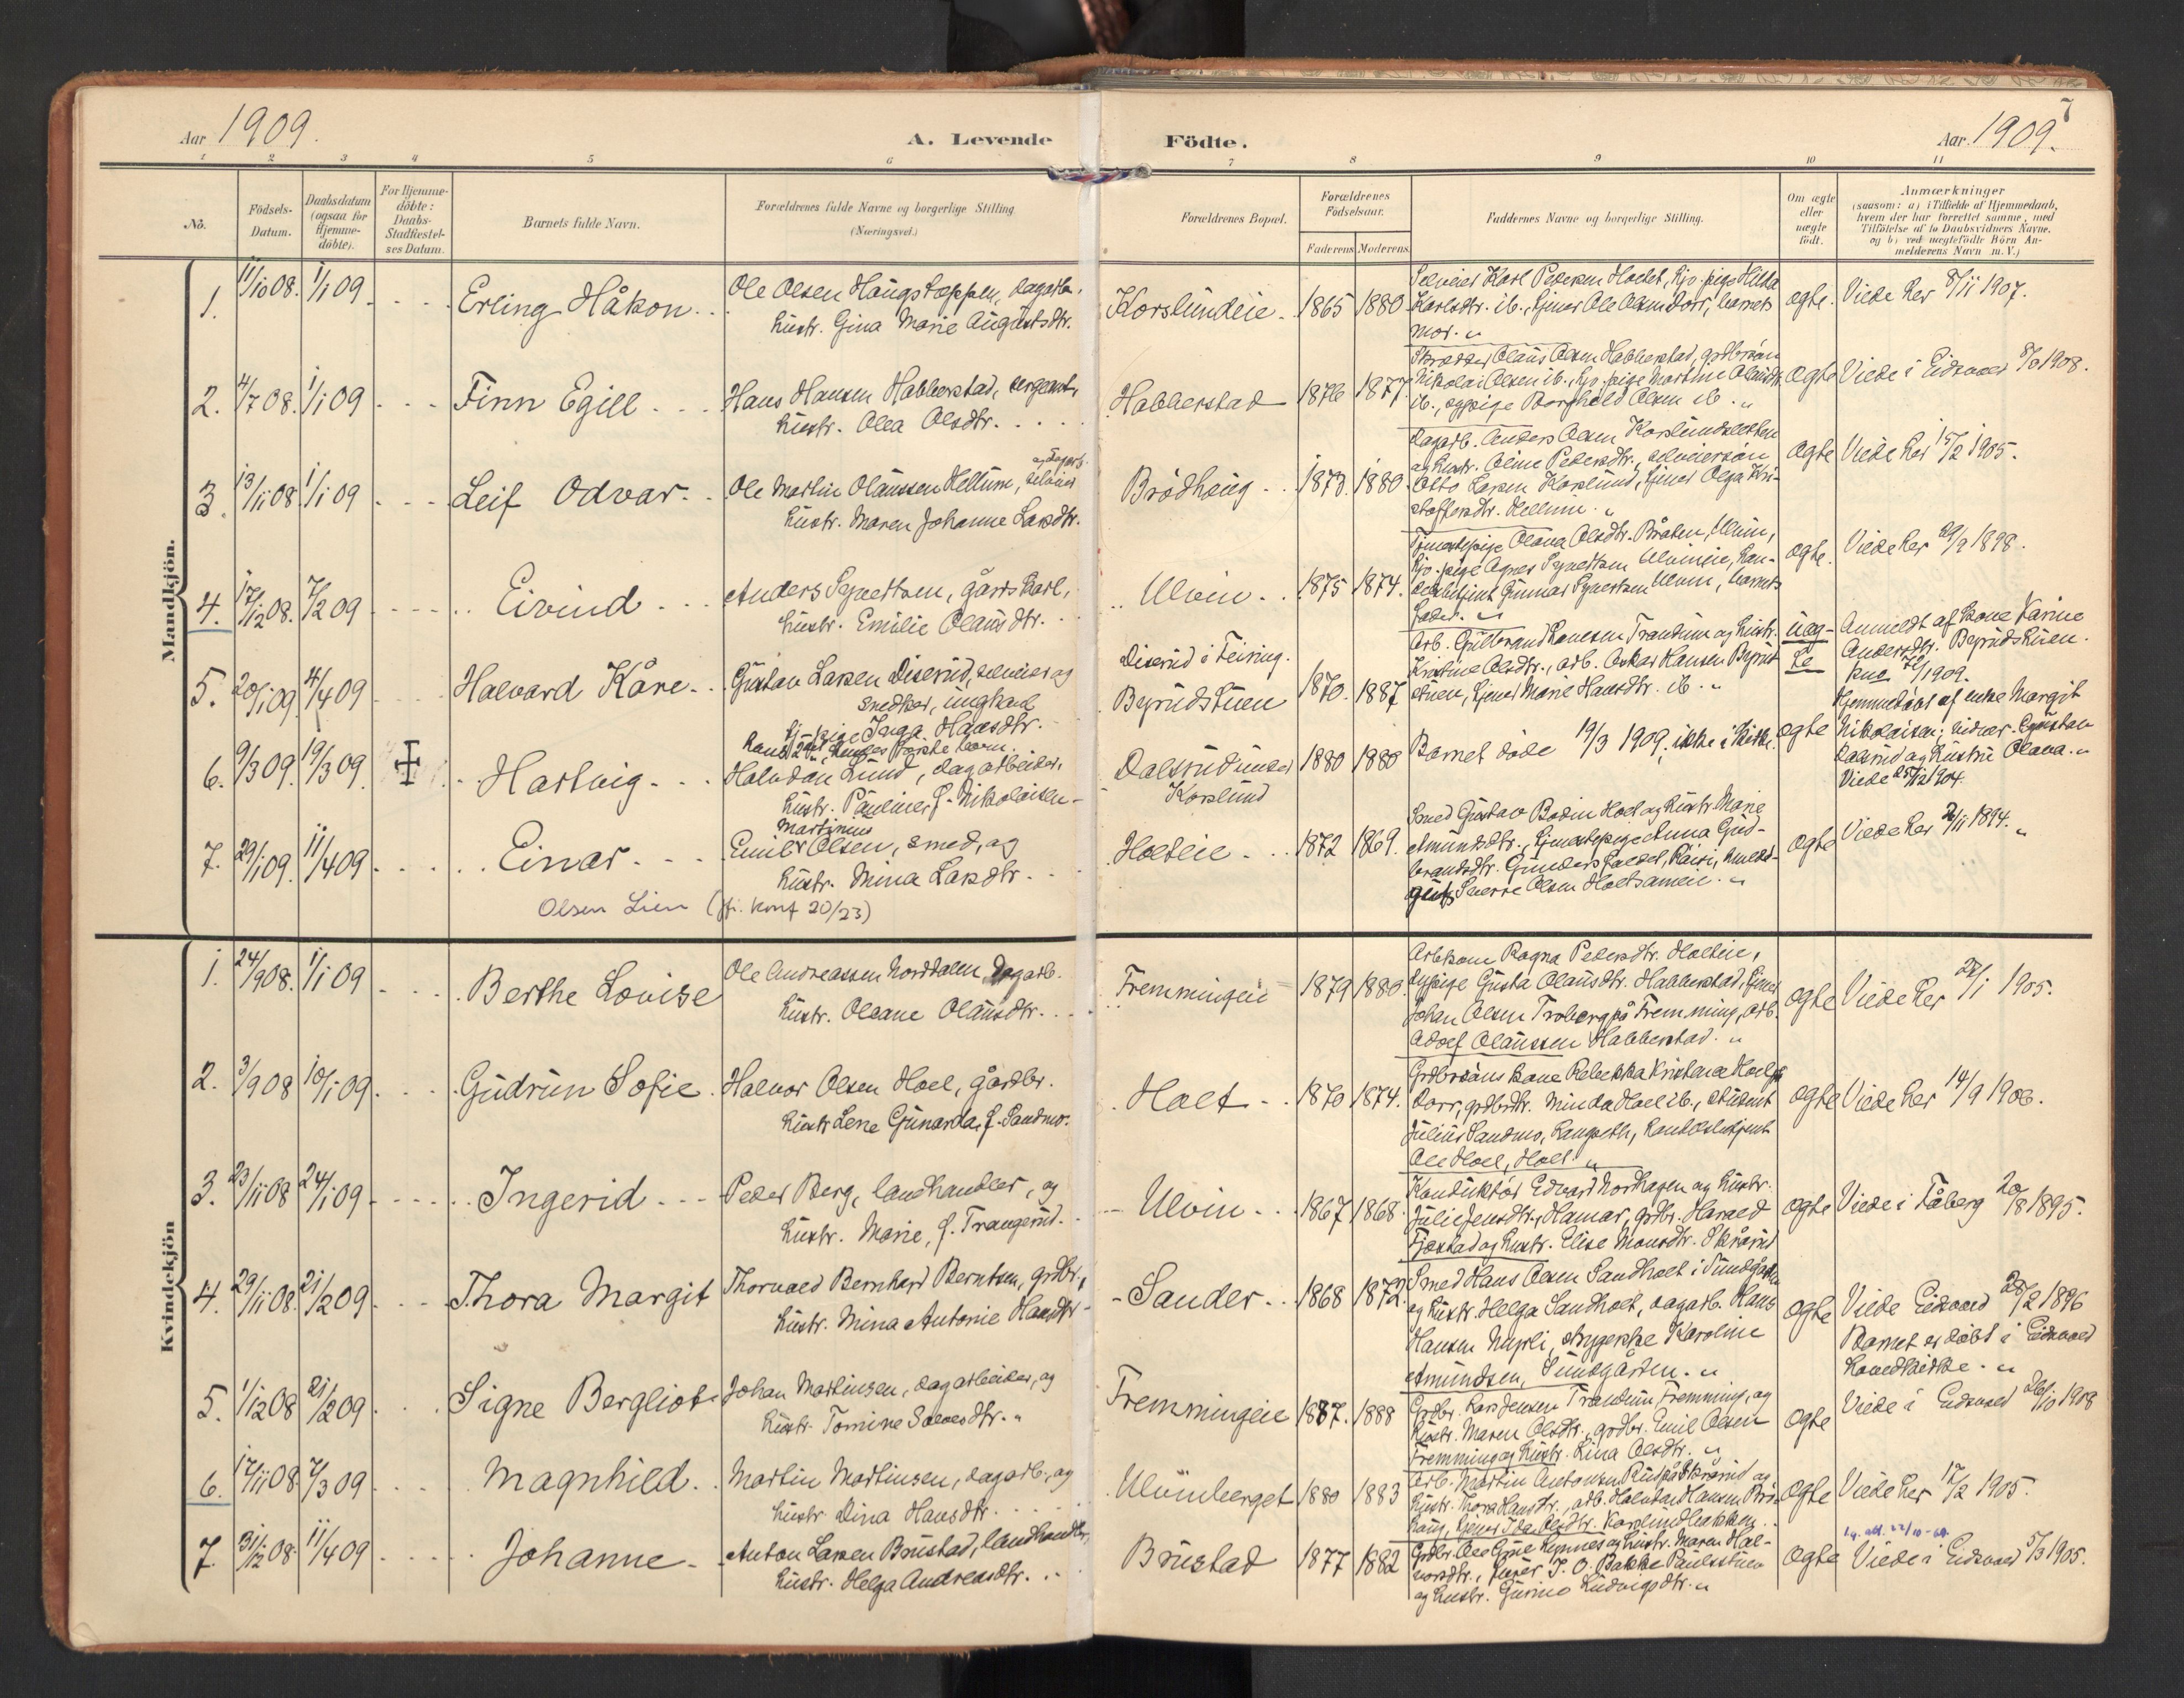 7
Aar 1909.
A. Levende
Födte.
Aar 1909.
1 2 3 4 5 6 7 8 9 10 11
No.
Födsels-
Datum.
Daabsdatum
(ogsaa for
Hjemme-
döbte).
For Hjemme-
döbte:
Daabs-
Stadfestel-
ses Datum.
Barnets fulde Navn.
Forældrenes fulde Navne og borgerlige Stilling
(Næringsvei.)
Forældrenes Bopæl.
Forældrenes
Födselsaar.
Faderens Moderens
Faddernes Navne og borgerlige Stilling.
Om ægte
eller
uægte
födt.
Anmærkninger
(saasom: a) i Tilfælde af Hjemmedaab,
hvem der har forrettet samme, med
Tilföielse af to Daabsvidners Navne.
og b) ved uægtefödte Börn An-
melderens Navn m.V.)
Mandkjön.
1. 11/10 08. 1/1 09 Erling Håkon.
Ole Olsen Haugstappen, dagarb.
hustr. Gina Marie Augustsdtr.
Korslundeie. 1865 1880
Selveier Karl Pedersen Holet, Hjo. pige Hilda
Karlsdtr. ib., tjener Ole Olsen Dorr, barnets
mor. "
ægte. Viede her 8/11 1907.
2. 4/7 08. 1/1 09 Finn Egill
Hans Hansen Habberstad, sergeant,
hustr. Olea Olsdtr.
Habberstad 1876 1877
Skrædder Olaus Olsen Habberstad, grdbrsøn
Nikolai Olsen ib., Hjo. pige Martine Olausdtr.
ib., sypige Borghild Olsen ib. "
ægte Viede i Eidsvold 1908.
3. 13/11 08. 1/1 09 Leif Odvar.
Ole Martin Olaussen Hellum, selveier
og dagarb.
hustr. Maren Johanne Larsdtr.
Brødhaug 1873 1880
Dagarb. Anders Olsen Korslundbakken
og hustr. Oline Pedersdtr., selveiersøn
Otto Larsen Korslund, tjener Olga Kri-
stoffersdtr. Hellum. "
ægte Viede her 15/2 1905.
4. 17/12 08. 7/2 09 Eivind
Anders Synestsen, gårdskarl,
hustr. Emilie Olausdtr.
Ulvin 1875 1874.
Tjenestepige Olava Olsdtr. Bråten, Ulvin,
Hjo. pige Agnes Synestsen Ulvineie, han-
delsbetjent Gunnar Synestsen Ulvin, barnets
fader. "
ægte. Viede her 29/9 1898.
5. 20/1 09. 4/4 09 Halvard Kåre
Gustav Larsen Diserud, selveier og
snedker, ungkarl
Hj. pige Inga Hansdtr.
Hans 2det, hendes første barn.
Diserud i Feiring.
Byrudstuen 1870. 1887
Arb. Gulbrand Hansen Trandum og hustr.
Kristine Olsdtr., arb. Oskar Hansen Byrud-
stuen, tjener Marie Hansdtr. ib. "
uæg-
te
Anmeldt af kone Karine
Andersdtr. Byrudstuen.
1909.
6. 9/3 09. 19/3 09. Hartvig
Halvdan Lund, dagarbeider,
hustr. Pauline, f. Nikolaisen
Dalsrud under
Korslund 1880 1880
Barnet døde 19/3 1909, ikke i kirke.
ægte
Hjemmedøbt af enke Margit
Nikolaisen; vidner: Gustav
Dalsrud og hustru Olava. "
Viede 25/12 1904.
7. 29/1 09. 11/4 09 Einar
Olsen Lien (jfr. konf 20/23)
Martinius
Emil Olsen, smed, og
hustr. Mina Larsdtr.
Holteie 1872 1869.
Smed Gustav Bodin Holt og hustr. Marie
Amundsdtr., tjenestepige Anna Gud-
brandsdtr.
Sverre Olsen Holtsameie. "
ægte Viede her 1894. "
Kvindekjön
1. 24/9 08. 1/1 09 Berthe Lovise
Ole Andreassen Norddalen, Dagarb.
hustr. Oleane Olausdtr.
Fremmingeie 1879 1880
Arbkone Ragna Pedersdtr. Holteie,
sypige Gusta Olausdtr. Habberstad, tjener
Johan Olsen Troberg på Fremming, arb.
Adolf Olaussen Habberstad. "
ægte Viede her 1905.
2. 3/9 08 10/1 09 Gudrun Sofie
Halvor Olsen Hoel, gårdbr.
hustr. Lene Gunarda, f. Sandmo.
Holt 1870 1874.
Grdbrsøns kone Rebekka Kristiane Hoel på
Dorr, grdbrdtr. Minda Hoel ib., student
Julius Sandmo, Langseth, handelsbetjent
Ole Hoel, Holt. "
ægte Viede her 14/9 1906.
3. 23/11 08 24/1 09 Ingerid
Peder Berg, landhandler, og
hustr. Marie, f. Trangerud.
Ulvin 1867 1868
Konduktør Edvard Nordhagen og hustr.
Julie Jensdtr., Hamar, grdbr. Harald
Fjæstad og hustr. Elise Monsdtr. Skrårud
ægte Viede i Fåberg 20/8 1895.
4. 29/11 08. 21/2 09 Thora Margit
Thorvald Bernhard Berntsen, grdbr.,
hustr. Mina Antonie Hansdtr.
Sander 1868 1872.
Smed Hans Olsen Sandholt i Sundgården
og hustr. Helga Sandholt, dagarb. Hans
Hansen Nyrli, strygerske Karoline
Amundsen, Sundgården. "
ægte Viede Eidsvold 28/2 1896
Barnet er døbt i Eidsvold
hovedkirke. "
5. 1/12 08 21/2 09 Signe Bergliot
Johan Martinsen, dagarbeider, og
hustr. Tomine Solvesdtr. "
Fremmingeie 1887. 1888
Grdbr. Lars Jensen Trandum Fremming, og
hustr. Maren Olsdtr., grdbr. Emil Olsen
Fremming og hustr. Lina Olsdtr. "
ægte Viede i Eidsvold 26/10 1908
6. 17/11 08. 7/3 09 Magnhild.
Martin Martinsen, dagarb., og
hustr. Dina Hansdtr.
Ulvinberget 1880 1883
Arb. Martin Antonsen Rud på Skrårud og
hustr. Thora Hansdtr., arb. Halvdan Hansen Brød-
haug, tjener Ida Olsdtr. Korslundbakken.
ægte Viede her 17/2 1905.
7. 31/12 08. 11/4 09 Johanne
Anton Larsen Brustad, landhandler,
hustr. Helga Andreasdtr.
Brustad 1877 1882
Grdbr. Ole Gjøe Lynnes og hustr. Maren Hal-
vorsdtr., J. O. Bakke Paulsstuen
og hustr. Gurine Ludvigsdtr. "
ægte Viede i Eidsvold 5/3 1905.